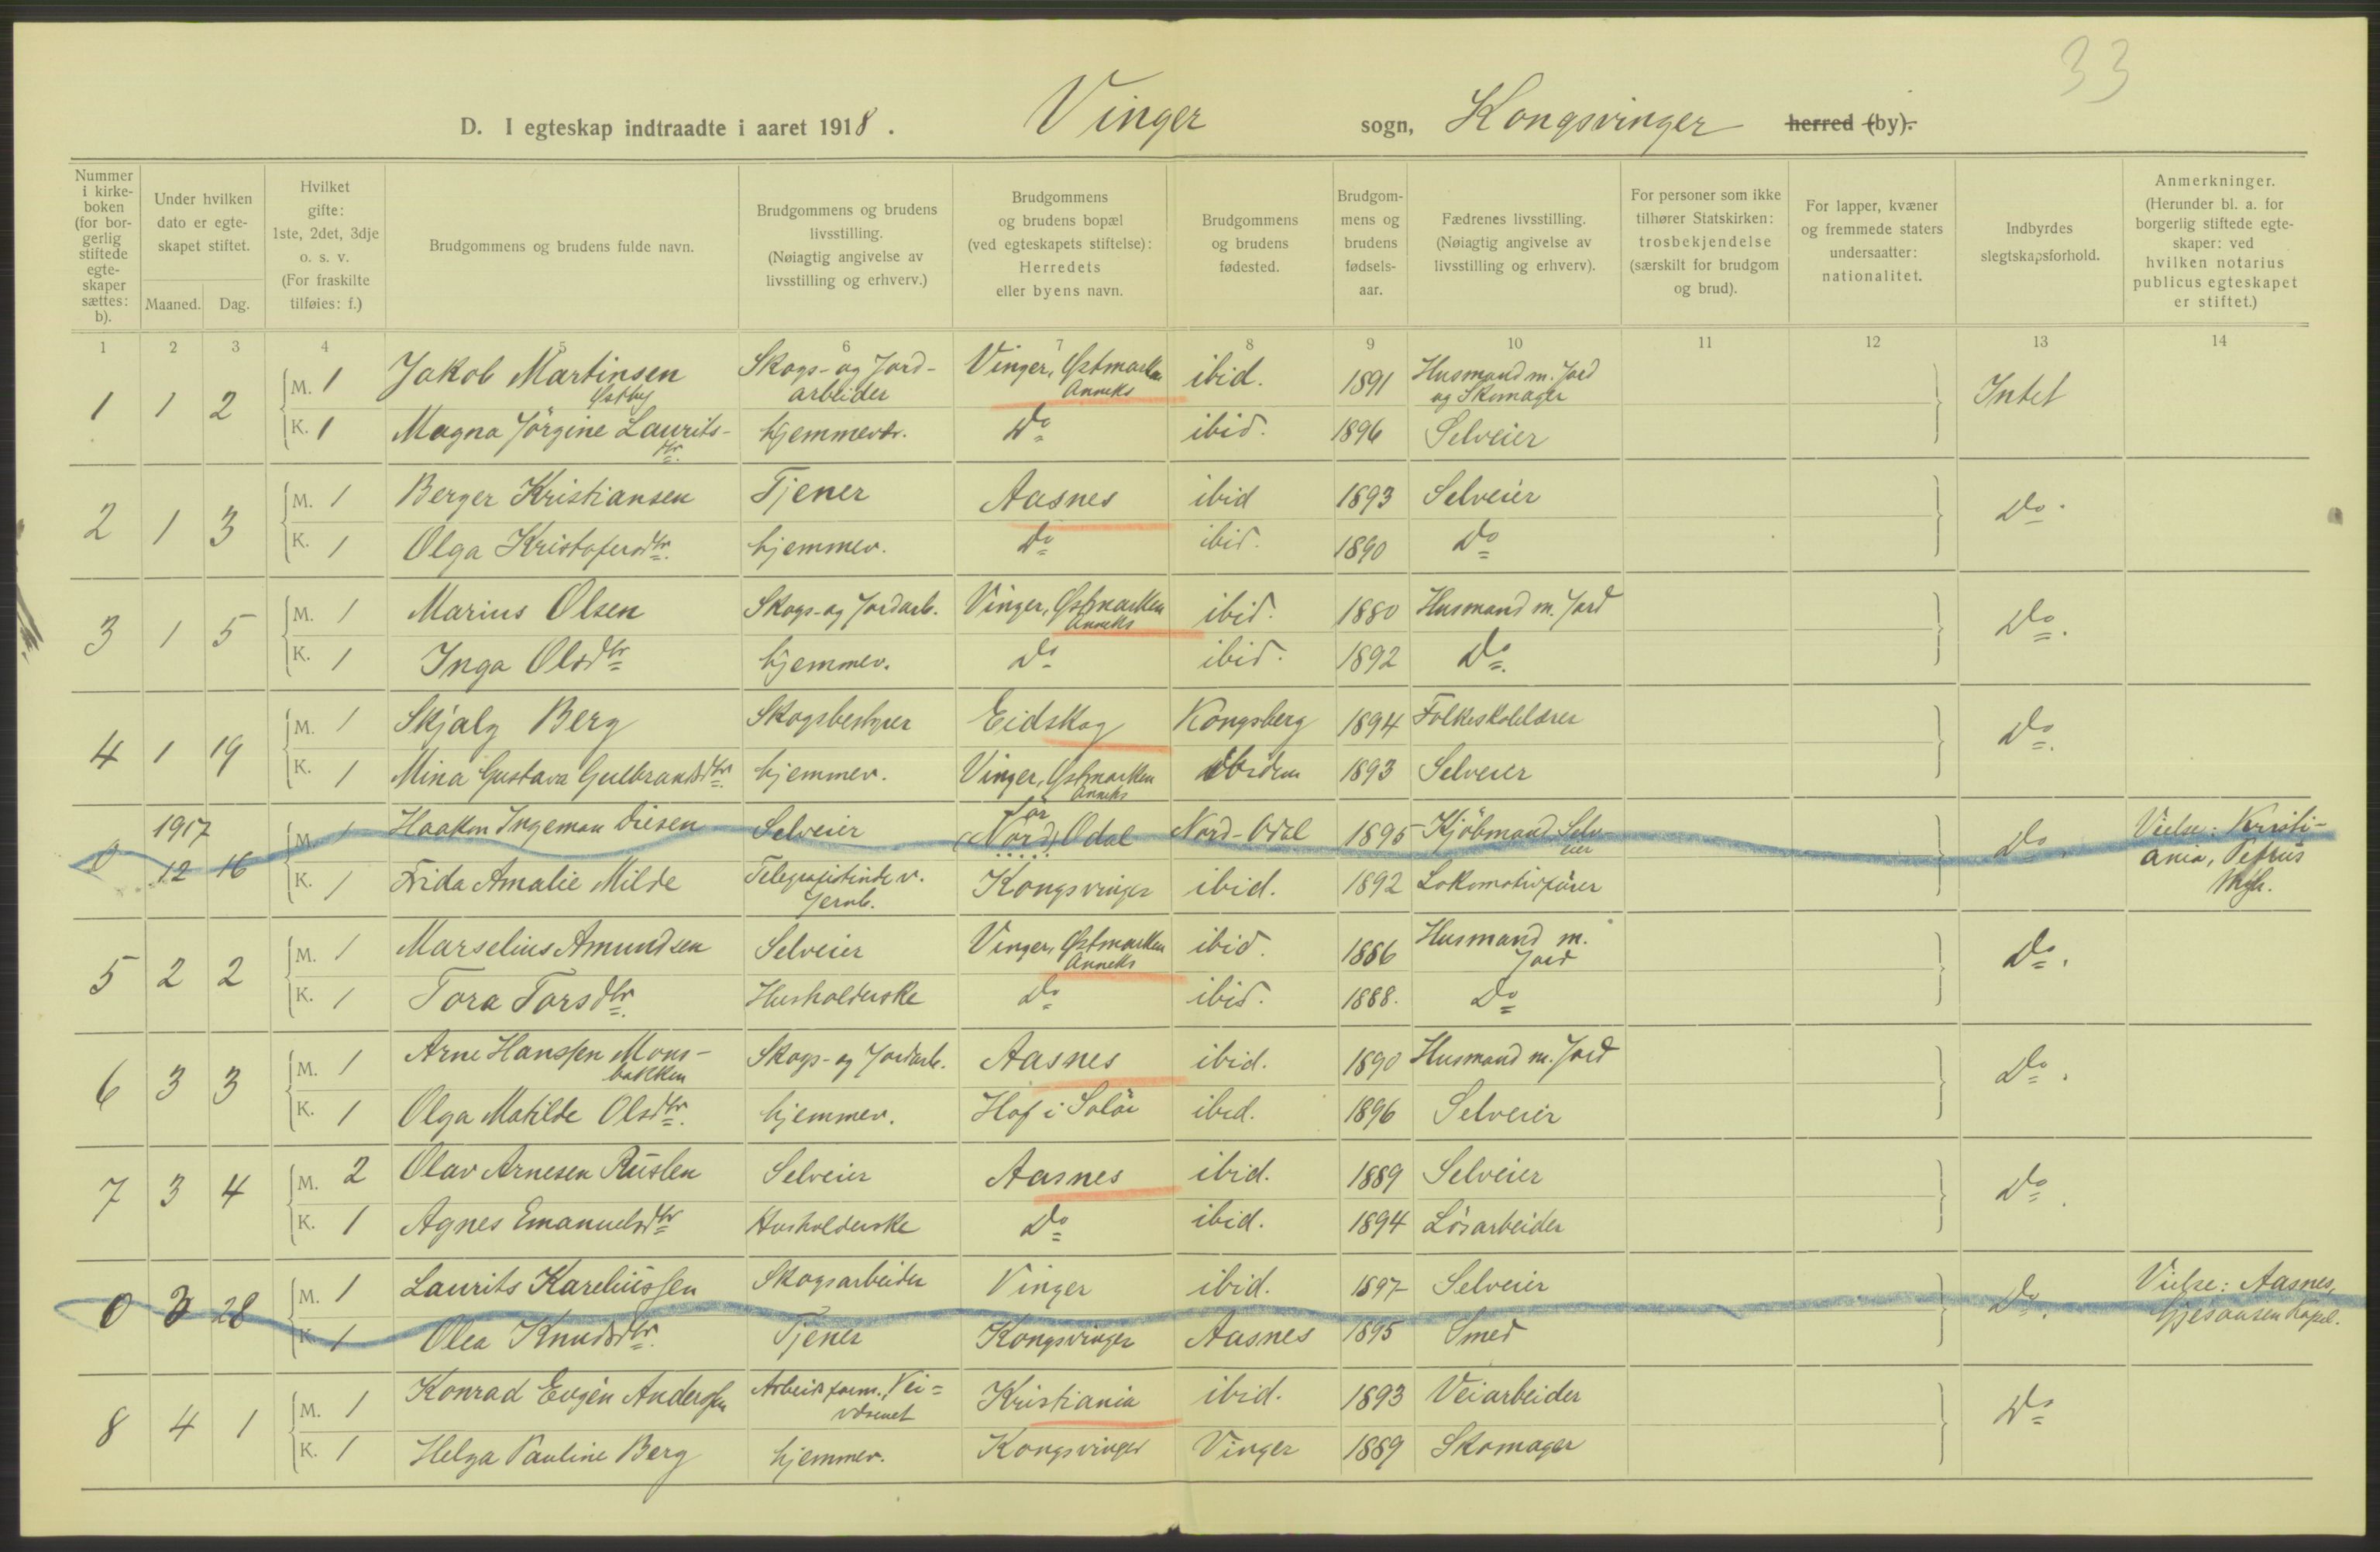 33
D. I egteskap indtraadte i aaret 1918. Vinger sogn, Kongsvinger herred (by).
Nummer i kirkeboken (for borgerlig stiftede egteskaper sættes: b).
Under hvilken dato er egteskapet stiftet.
Maaned. Dag.
Hvilket gifte: 1ste, 2det, 3dje o. s. v. (For fraskilte tilføies: f.)
Brudgommens og brudens fulde navn.
Brudgommens og brudens livsstilling. (Nøiagtig angivelse av livsstilling og erhverv.)
Brudgommens og brudens bopæl (ved egteskapets stiftelse): Herredets eller byens navn.
Brudgommens og brudens fødested.
Brudgommens og brudens fødselsaar.
Fædrenes livsstilling. (Nøiagtig angivelse av livsstilling og erhverv).
For personer som ikke tilhører Statskirken: trosbekjendelse (særskilt for brudgom og brud).
For lapper, kvæner og fremmede staters undersaatter: nationalitet.
Indbyrdes slegtskapsforhold.
Anmerkninger. (Herunder bl. a. for borgerlig stiftede egteskaper: ved hvilken notarius publicus egteskapet er stiftet.)
1 2 3 4 5 6 7 8 9 10 11 12 13 14
1 1 2 M. 1 Jakob Martinsen Østby Skogs- og Jordarbeider Vinger, Østmarken Anneks ibid. 1891 Husmand m. Jord og Skomager Intet
K. 1 Magna Jörgine Lauritsdtr. hjemmevær. Do ibid. 1896 Selveier
2 1 3 M. 1 Berger Kristiansen Tjener Aasnes ibid 1893 Selveier Do.
K. 1 Olga Kristofersdtr. hjemmev. Do ibid. 1890 Do
3 1 5 M. 1 Marius Olsen Skogs- og Jordarb. Vinger, Østmarken Anneks ibid. 1880 Husmand m. Jord Do.
K. 1 Inga Olsdtr hjemmev. Do ibid. 1892 Do.
4 1 19 M. 1 Skjalg Berg Skogsbestyrer Eidskog Kongsberg 1894 Folkeskolelærer Do.
K. 1 Mina Gustava Gulbrandsdtr. hjemmev. Vinger, Østmarken Anneks 1893 Selveier
0 1917 12 16 M. 1 Haakon Ingeman Diesen Selveier (Nord) Odal Nord-Odal 1895 Kjöbmand Selveier Do. Vielse: Kristiania, Petrus
K. 1 Frida Amalie Milde Telegrafistinde v. Jernb. Kongsvinger ibid. 1892 Lokomotivfører
5 2 2 M. 1 Marselius Amundsen Selveier Vinger, Østmarken Anneks ibid. 1886 Husmand m. Jord Do.
K. 1 Tora Torsdtr. Husholderske Do ibid. 1888. Do
6 3 3 M. 1 Arne Hanssen Monsbakken Skogs- og Jordarb. Aasnes ibid. 1890 Husmand m. Jord Do.
K. 1 Olga Matilde Olsdtr. hjemmev. Hof i Solör ibid. 1896 Selveier
7 3 4 M. 2 Olav Arnesen Rusten Selveier Aasnes ibid. 1889 Selveier Do.
K. 1 Agnes Emanuelsdtr Husholderske Do ibid. 1894 Lösarbeider
0 3 28 M. 1 Laurits Kareliussen Skogsarbeider Vinger ibid. 1897 Selveier Do. Vielse: Aasnes, Gjesaasen Kapel.
K. 1 Olea Knudsdtr. Tjener Kongsvinger Aasnes 1895 Smed
8 4 1 M. 1 Konrad Eugén Anderssen Arbeidsform. Veivæsenet Kristiania ibid. 1893 Veiarbeider Do
K. 1 Helga Pauline Berg hjemmev. Kongsvinger Vinger 1889 Skomager